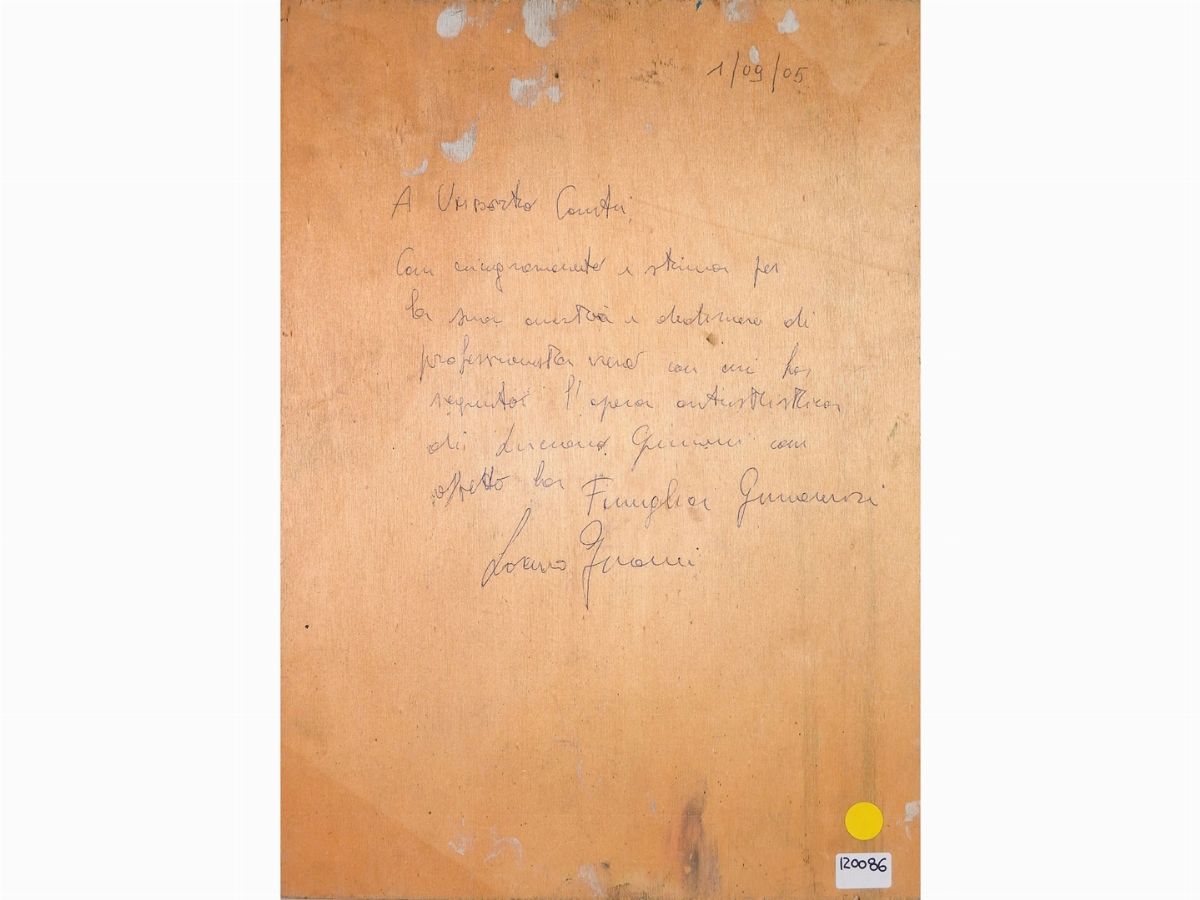 1/09/05
A Umberto Conti,
Con e stima per
la sua onestà e di
professionista vero con cui ha
seguito l'opera artistica
di Luciano Guarnieri con
affetto la Famiglia Guarnieri
Guarnieri
120086